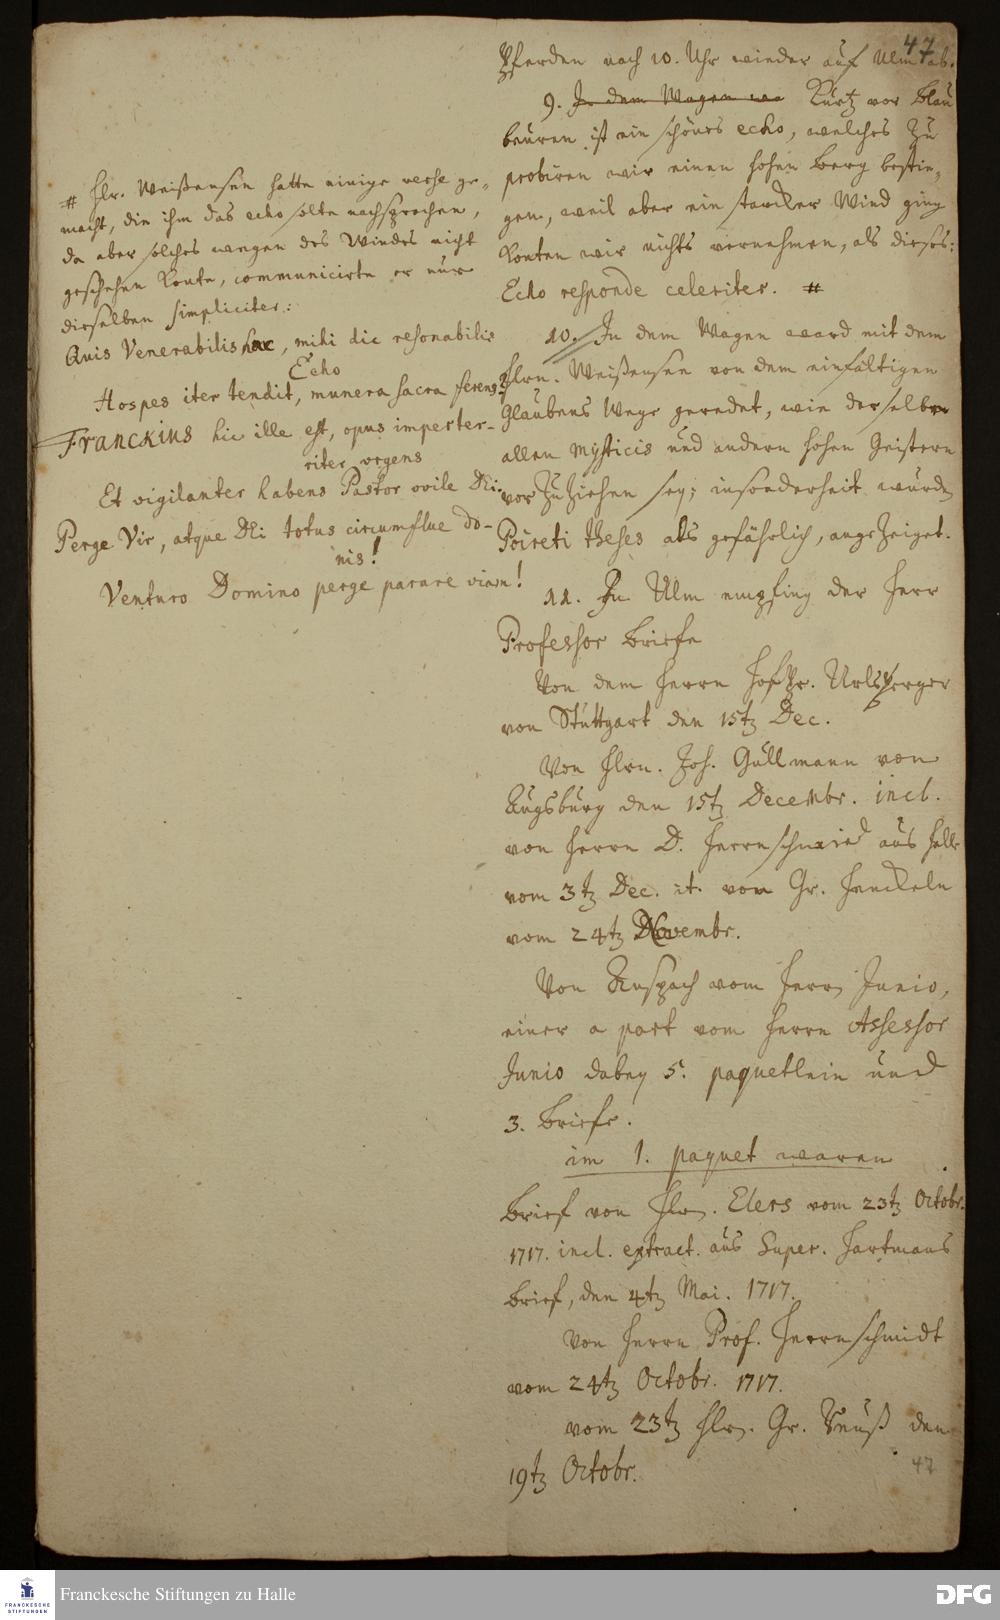 47
Pferden nach 10. Uhr wieder auf Ulm ab.
9. In dem Wagen wa Kurtz vor Blau
beuren ist ein schönes echo, welches zu
probiren wir einen hohen Berg bestie-
gen, weil aber ein starcker Wind ging
konten wir nichts vernehmen, als dieses:
Echo responde celeriter. #
10. In dem Wagen ward mit dem
Hrn. Weißensen von dem einfältigen
Glaubens Wege geredet, wie derselbe
allen Mysticis und andern hohen Geistern
vorzuziehen sey; insonderheit wurden
Poireti theses als gefährlich, angezeiget.
11. In Ulm empfing der Herr
Professor Briefe
Von dem Herrn HofPr. Urlsperger
von Stuttgart den 15tz Dec.
Von Hrn. Joh. Gullmann von
Augsburg den 15tz Decembr. incl.
von Herrn D. Herrnschmied aus Halle
vom 3tz Dec. it. von Gr. Henckeln
vom 24tz Novembr.
Von Anspach vom Herrn Junio,
einer a part vom Herrn Assessor
Junio dabey 5. paquetlein und
3. Briefe.
im 1. paquet waren
Brief von Hrn. Elers vom 23tz Octobr.
1717. incl. extract. aus Super. Hartmans
Brief, den 4tz Mai. 1717.
Von Herrn Prof. Herrnschmidt
vom 24tz Octobr. 1717.
vom 23tz Hrn. Gr. Reuß den
19tz Octobr.
47
# Hr. Weißensen hatte einige verse ge-
macht, die ihm das echo solte nachsprechen,
da aber solches wegen des Windes nicht
geschehen konte, communicirte er nur
dieselben simpliciter:
Quis Venerabilis hac, mihi dic resonabilis
Echo
Hospes iter tendit, munera sacra ferens?
Franckius hic ille est, opus imperter-
riter urgens
Et vigilanter habens Pastor ovile Dei.
Perge Vir, atque Dei totus circumflue do-
nis!
Venturo Domino perge parare viam!
FRANCKESCHE
STIFTUNGEN
Franckesche Stiftungen zu Halle
DFG